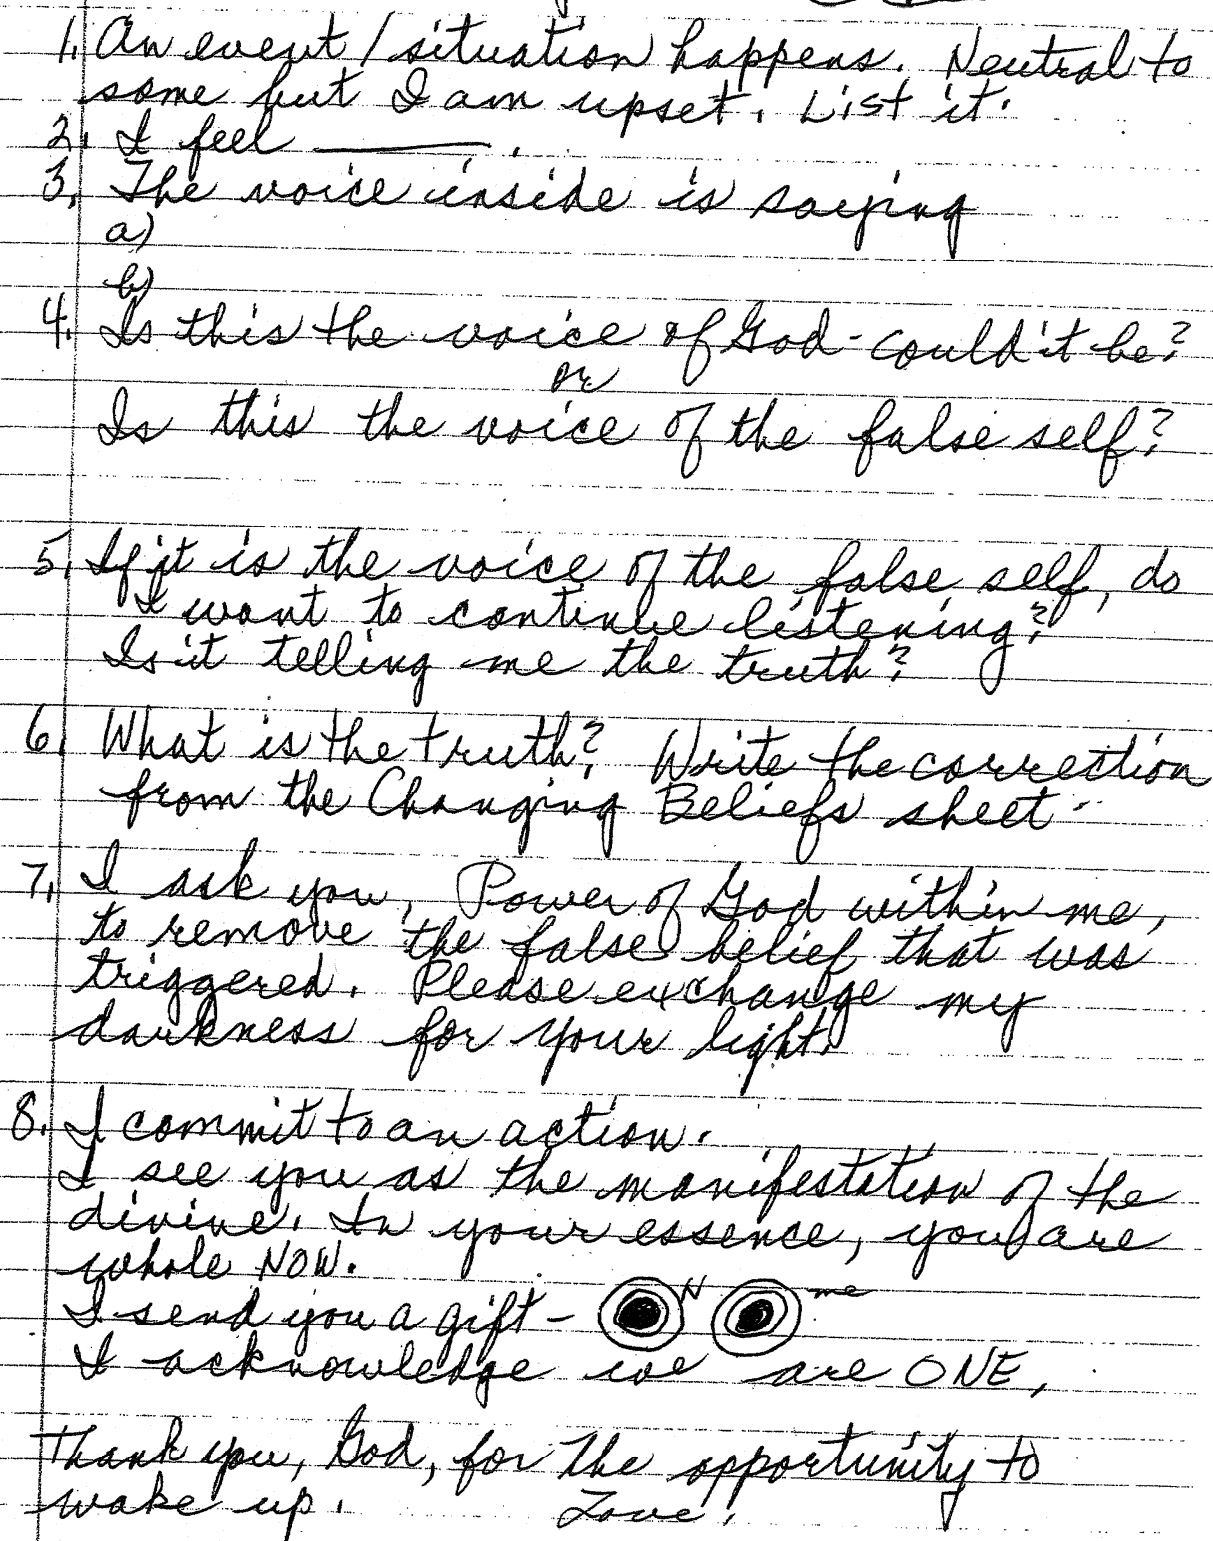 1. An event / situation happens. Neutral to
some but I am upset. List it.
2. I feel ______.
3. The voice inside is saying
a)
b)
4. Is this the voice of God - could it be?
or
Is this the voice of the false self?
5. If it is the voice of the false self, do
I want to continue listening?
Is it telling me the truth?
6. What is the truth? Write the correction
from the Changing Beliefs sheet -
7. I ask you, Power of God within me,
to remove the false belief that was
triggered. Please exchange my
darkness for your light.
8. I commit to an action.
I see you as the manifestation of the
divine. In your essence, you are
whole NOW.
I send you a gift - N me
I acknowledge we are ONE,
Thank you, God, for the opportunity to
wake up. Love!